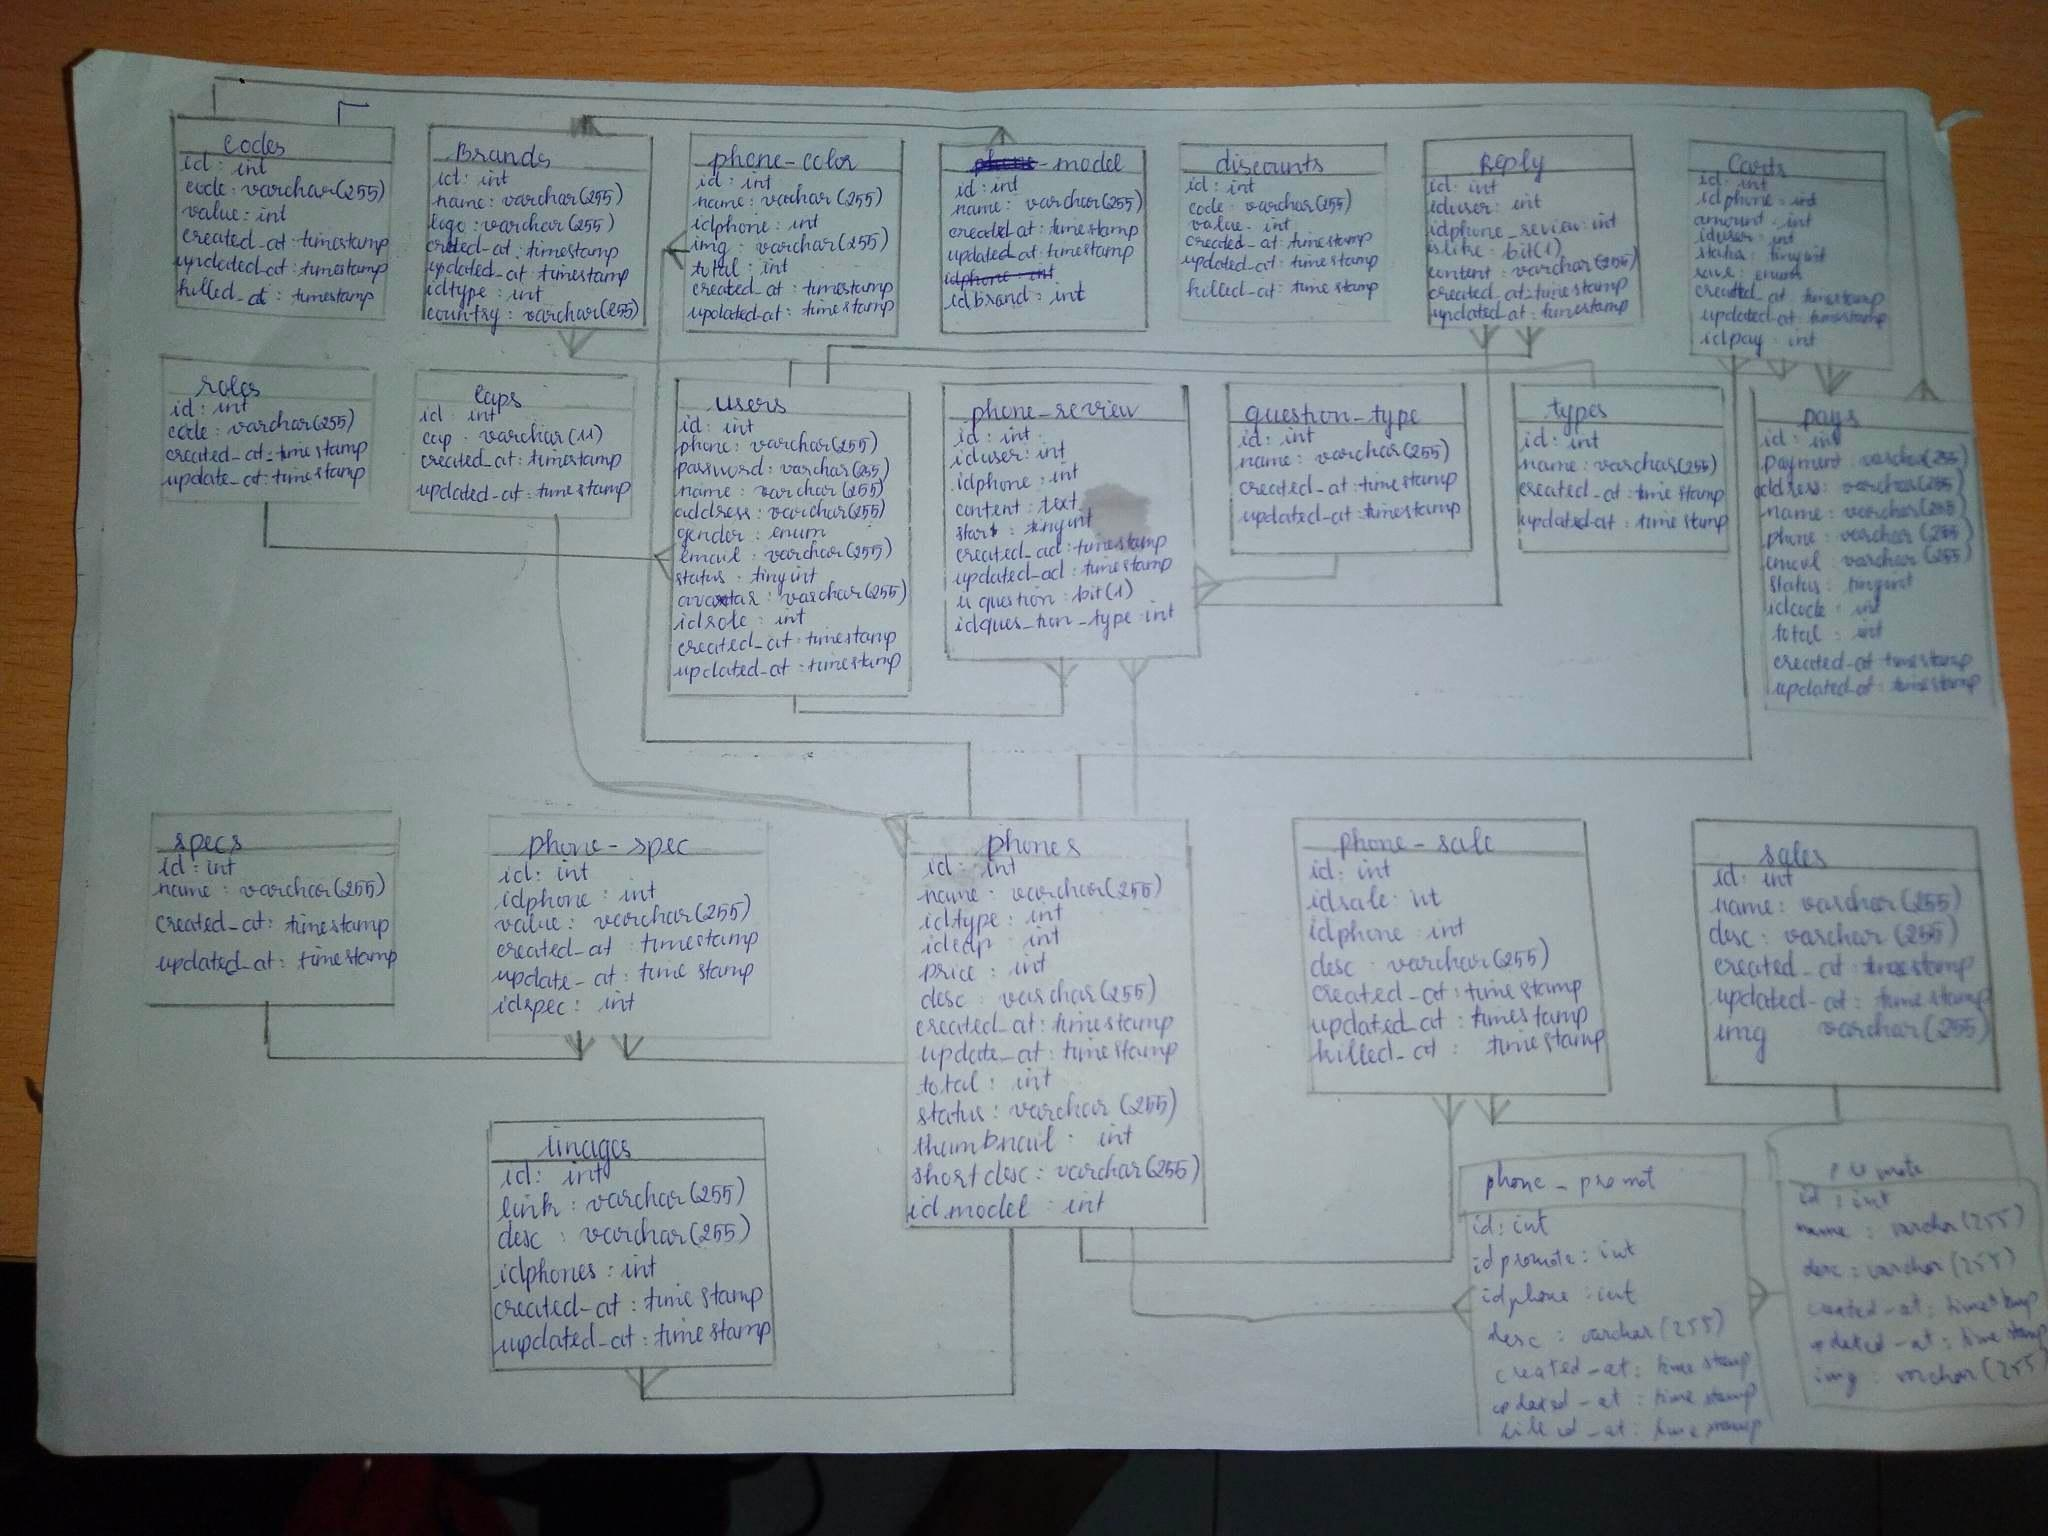 codes
id: int
code: varchar(255)
value: int
created_at: timestamp
updated_at: timestamp
killed_at: timestamp
Brands
id: int
name: varchar(255)
logo: varchar(255)
created_at: timestamp
updated_at: timestamp
idtype: int
country: varchar(255)
phone-color
id: int
name: varchar(255)
idphone: int
img: varchar(255)
total: int
created_at: timestamp
updated_at: timestamp
phone-model
id: int
name: varchar(255)
created_at: timestamp
updated_at: timestamp
idphone: int
idbrand: int
discounts
id: int
code: varchar(255)
value: int
created_at: timestamp
updated_at: timestamp
killed_at: timestamp
Reply
id: int
iduser: int
idphone_review: int
islike: bit(1)
content: varchar(255)
created_at: timestamp
updated_at: timestamp
Carts
id: int
idphone: int
amount: int
iduser: int
tinyint
created_at: timestamp
updated_at: timestamp
idpay: int
roles
id: int
code: varchar(255)
created_at: timestamp
update_at: timestamp
caps
id: int
cap: varchar(11)
created_at: timestamp
updated_at: timestamp
users
id: int
phone: varchar(255)
password: varchar(255)
name: varchar(255)
address: varchar(255)
gender: enum
email: varchar(255)
status: tinyint
avartar: varchar(255)
idrole: int
created_at: timestamp
updated_at: timestamp
phone-review
id: int
iduser: int
idphone: int
content: text
start: tinyint
created_ad: timestamp
updated_ad: timestamp
is question: bit(1)
idques_tion_type: int
question-type
id: int
name: varchar(255)
created_at: timestamp
updated_at: timestamp
types
id: int
name: varchar(255)
created_at: timestamp
updated_at: timestamp
pays
id: int
payment: varchar(255)
address: varchar(255)
name: varchar(255)
phone: varchar(255)
email: varchar(255)
status: tinyint
idcode: int
total: int
created_at: timestamp
updated_at: timestamp
specs
id: int
name: varchar(255)
created_at: timestamp
updated_at: timestamp
phone-spec
id: int
idphone: int
value: varchar(255)
created_at: timestamp
update_at: timestamp
idspec: int
phones
id: int
name: varchar(255)
idtype: int
idcap: int
price: int
desc: varchar(255)
created_at: timestamp
update_at: timestamp
total: int
status: varchar(255)
thumbnail: int
shortdesc: varchar(255)
id.model: int
phone-sale
id: int
idsale: int
idphone: int
desc: varchar(255)
created_at: timestamp
updated_at: timestamp
killed_at: timestamp
sales
id: int
name: varchar(255)
desc: varchar(255)
created_at: timestamp
updated_at: timestamp
img varchar(255)
images
id: int
link: varchar(255)
desc: varchar(255)
idphones: int
created_at: timestamp
updated_at: timestamp
phone_promot
id: int
idpromote: int
idphone: int
desc: varchar(255)
created_at: timestamp
updated_at: timestamp
killed_at: timestamp
id: int
name: varchar(255)
desc: varchar(255)
created_at: timestamp
updated_at: timestamp
img: varchar(255)